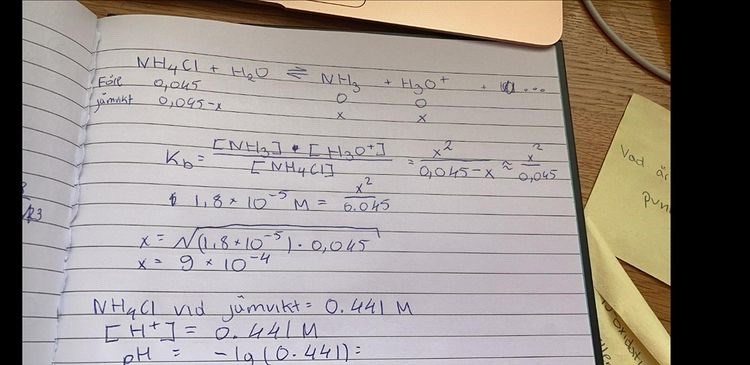 NH4Cl + H2O ⇌ NH3 + H3O+ + ...
Före 0,045 0 0
jämvikt 0,045-x x x
Kb = [NH3] • [H3O+] / [NH4Cl] = x² / 0,045-x ≈ x² / 0,045
1,8 * 10^-5 M = x² / 0.045
x = √(1,8*10^-5) · 0,045
x = 9 * 10^-4
NH4Cl vid jämvikt = 0.441 M
[H+] = 0.441 M
pH = -lg(0.441) =
Vad är
pun
oxidati